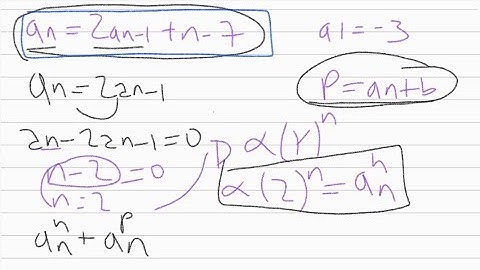 an = 2an-1 + n - 7
a1 = -3
an = 2an-1
P = an + b
an - 2an-1 = 0
α(r)^n
n - 2 = 0
n = 2
α(2)^n = an^h
an^h + an^p